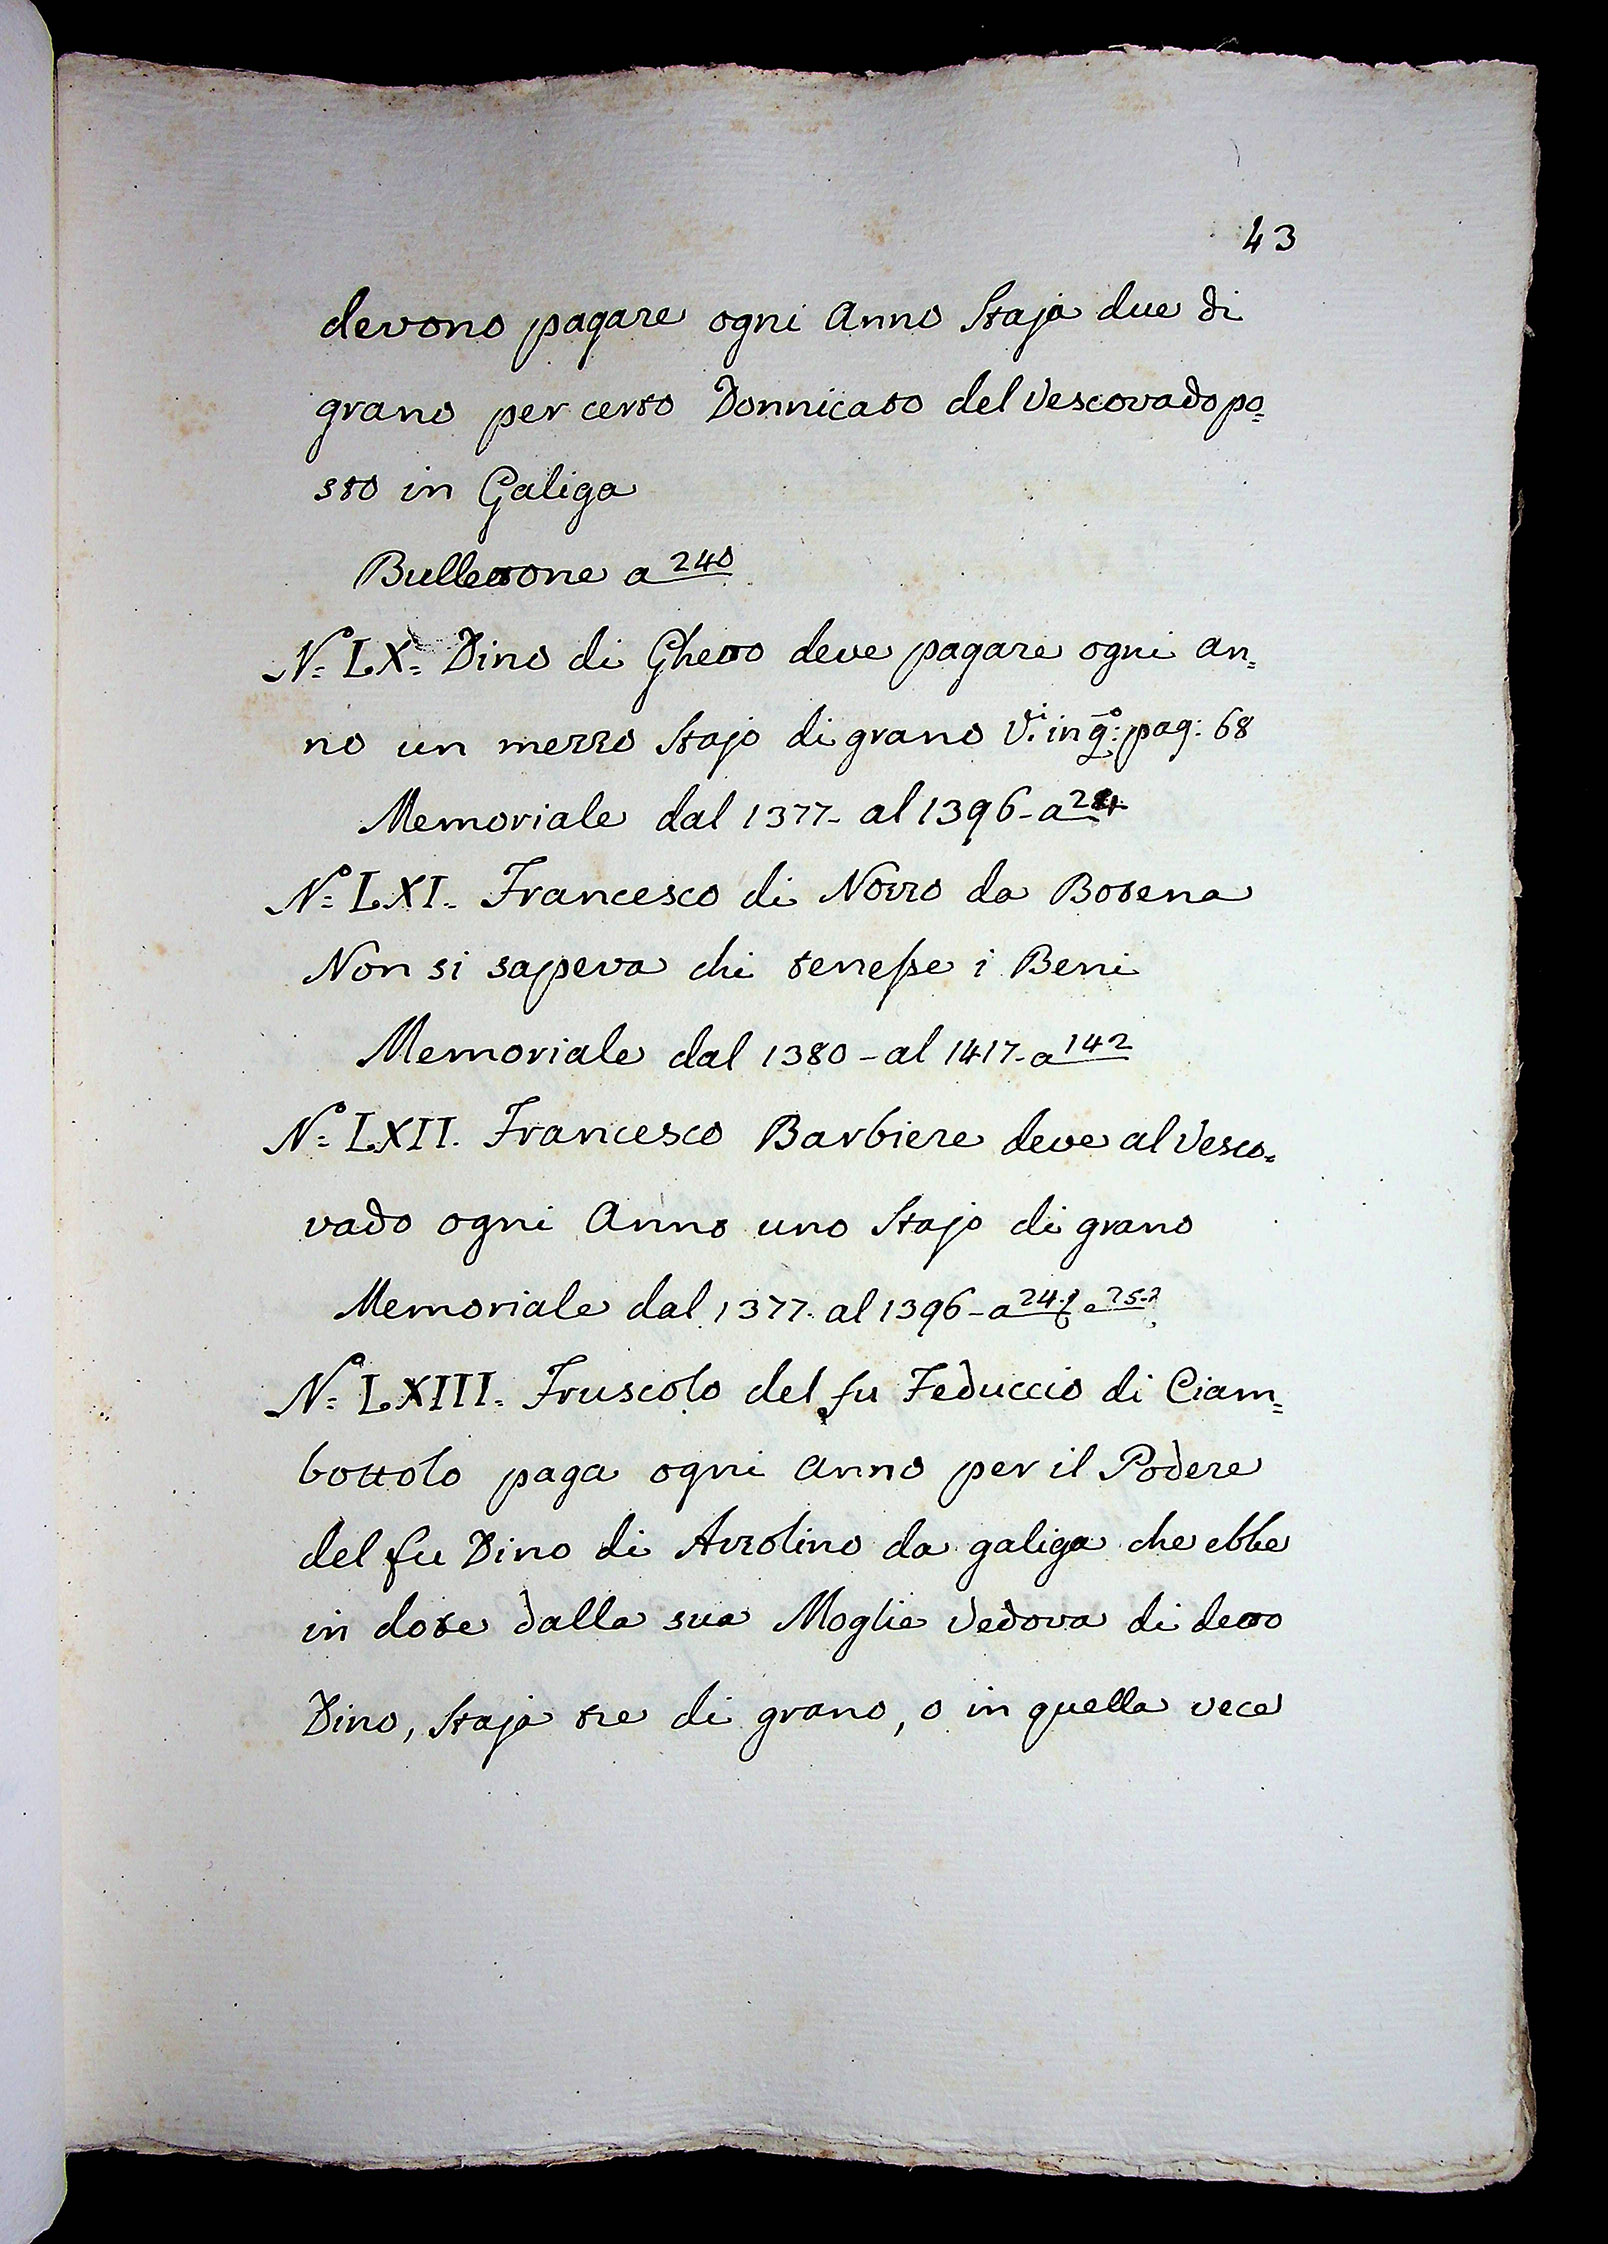 43
devono pagare ogni Anno Staja due di
grano per certo Donnicato del Vescovado po=
sto in Galiga
Bullettone a 240
Nº LX. Dino di Ghetto deve pagare ogni an=
no un mezzo Stajo di grano V.i in q.º: pag: 68
Memoriale dal 1377- al 1396- a 24
Nº LXI. Francesco di Nozzo da Botena
Non si sapeva chi tenesse i Beni
Memoriale dal 1380- al 1417- a 142
Nº LXII. Francesco Barbiere deve al Vesco=
vado ogni Anno uno Stajo di grano
Memoriale dal 1377. al 1396- a 24. e 25.
Nº LXIII. Fruscolo del fu Feduccio di Ciam=
bottolo paga ogni Anno per il Podere
del fu Dino di Azzolino da galiga che ebbe
in dote dalla sua Moglie Vedova di detto
Dino, Staja tre di grano, o in quella vece